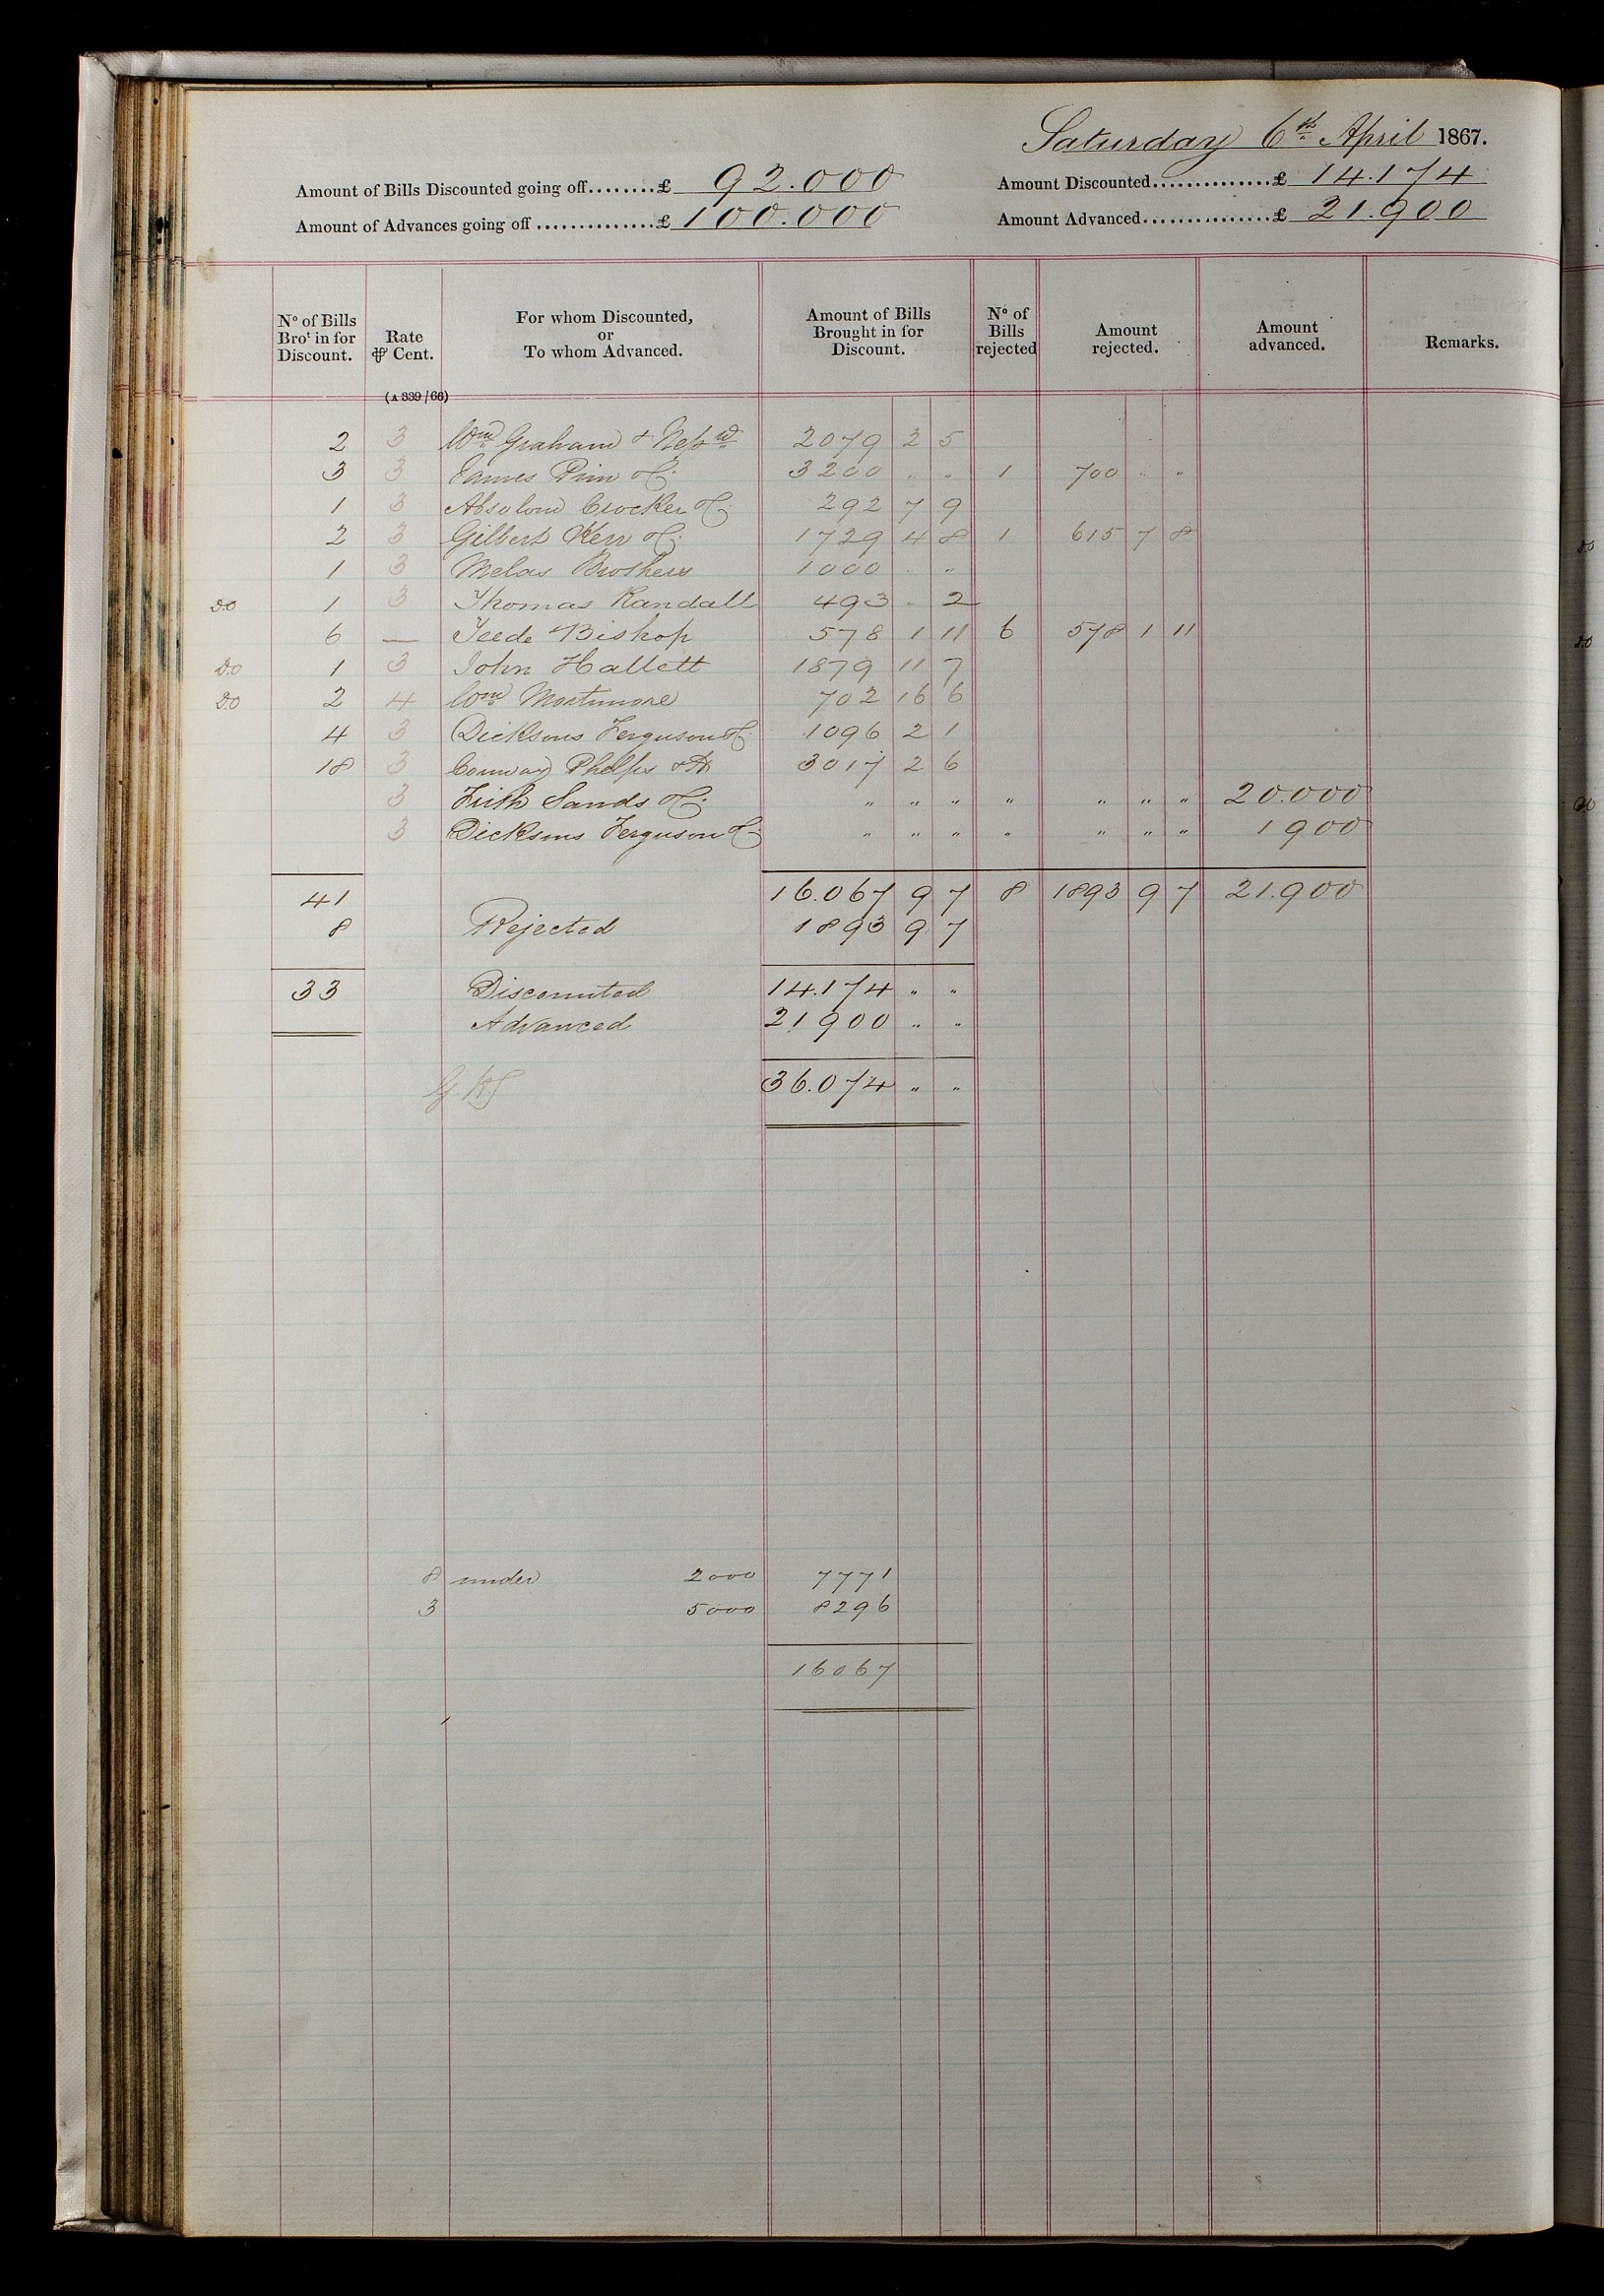 Saturday 6th April 1867.
Amount of Bills Discounted going off........£ 92.000
Amount Discounted..............£ 14.174
Amount of Advances going off..............£ 100.000
Amount Advanced...............£ 21.900
No of Bills Brot in for Discount. Rate ⅌ Cent. For whom Discounted, or To whom Advanced. Amount of Bills Brought in for Discount. No of Bills rejected Amount rejected. Amount advanced. Remarks.
(A 339/66)
2 3 Wm Graham & 2079 2 5
3 3 James Pim & Co 3200 " " 1 700 " "
1 3 Absolom Crocker & Co 292 7 9
2 3 Gilbert Kerr & Co 1729 4 8 1 615 7 8
1 3 Melas Brothers 1000 " "
Do 1 3 Thomas Randall 493 " 2
6 — Teede & Bishop 578 1 11 6 578 1 11
Do 1 3 John Hallett 1879 11 7
Do 2 4 Wm Mortimore 702 16 6
4 3 Dicksons Ferguson & Co 1096 2 1
18 3 Conway Phelps & 3017 2 6
3 Frith Sands & Co " " " " " " " 20.000
3 Dicksons Ferguson & Co " " " " " " " 1900
41 16.067 9 7 8 1893 9 7 21.900
8 Rejected 1893 9 7
33 Discounted 14.174 " "
Advanced 21900 " "
36.074 " "
8 under 2000 7771
3 5000 8296
16067